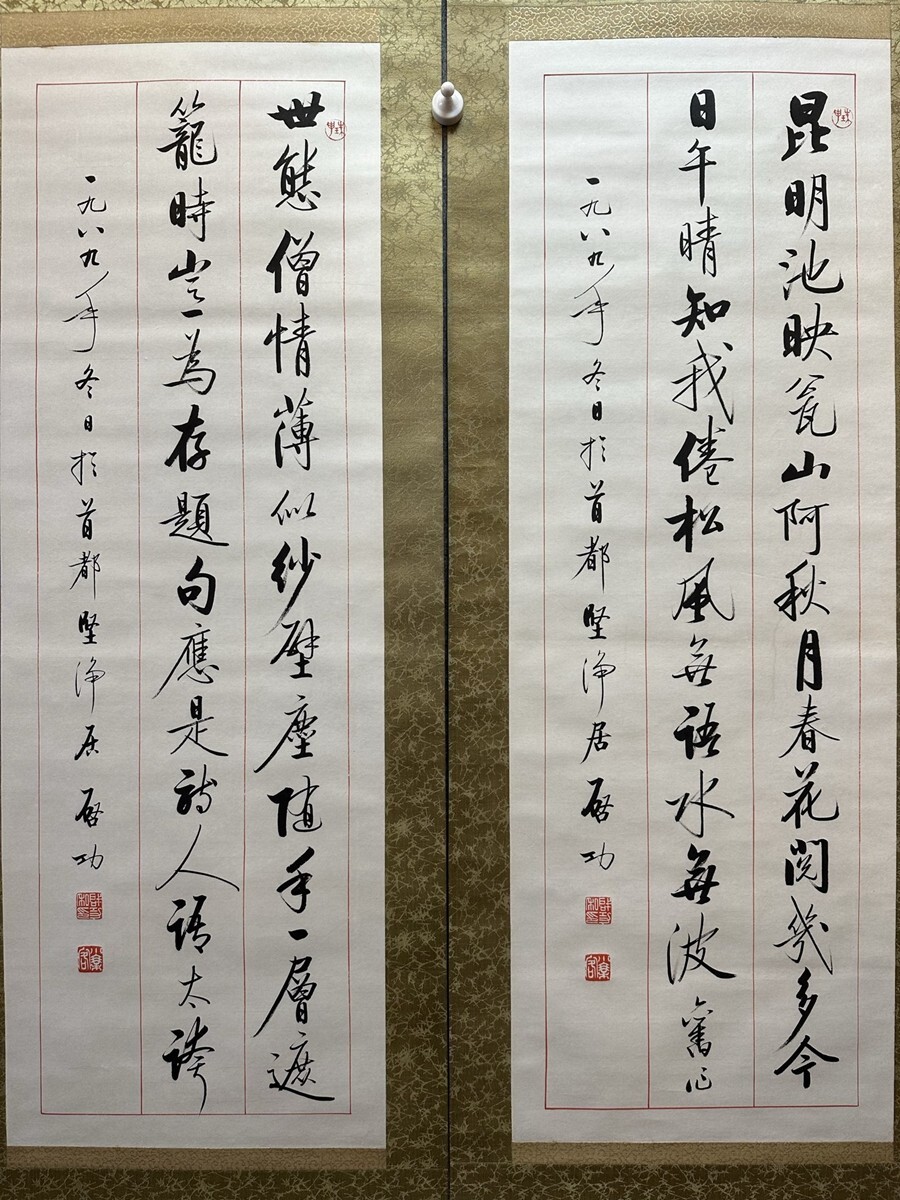 昆明池映瓮山阿秋月春花閱幾多今
日午晴知我倦松風無語水無波舊作
一九八九年冬日於首都堅淨居啓功
世態僧情薄似紗壁塵随手一層遮
籠時豈為存題句應是詩人語太誇
一九八九年冬日於首都堅淨居啓功